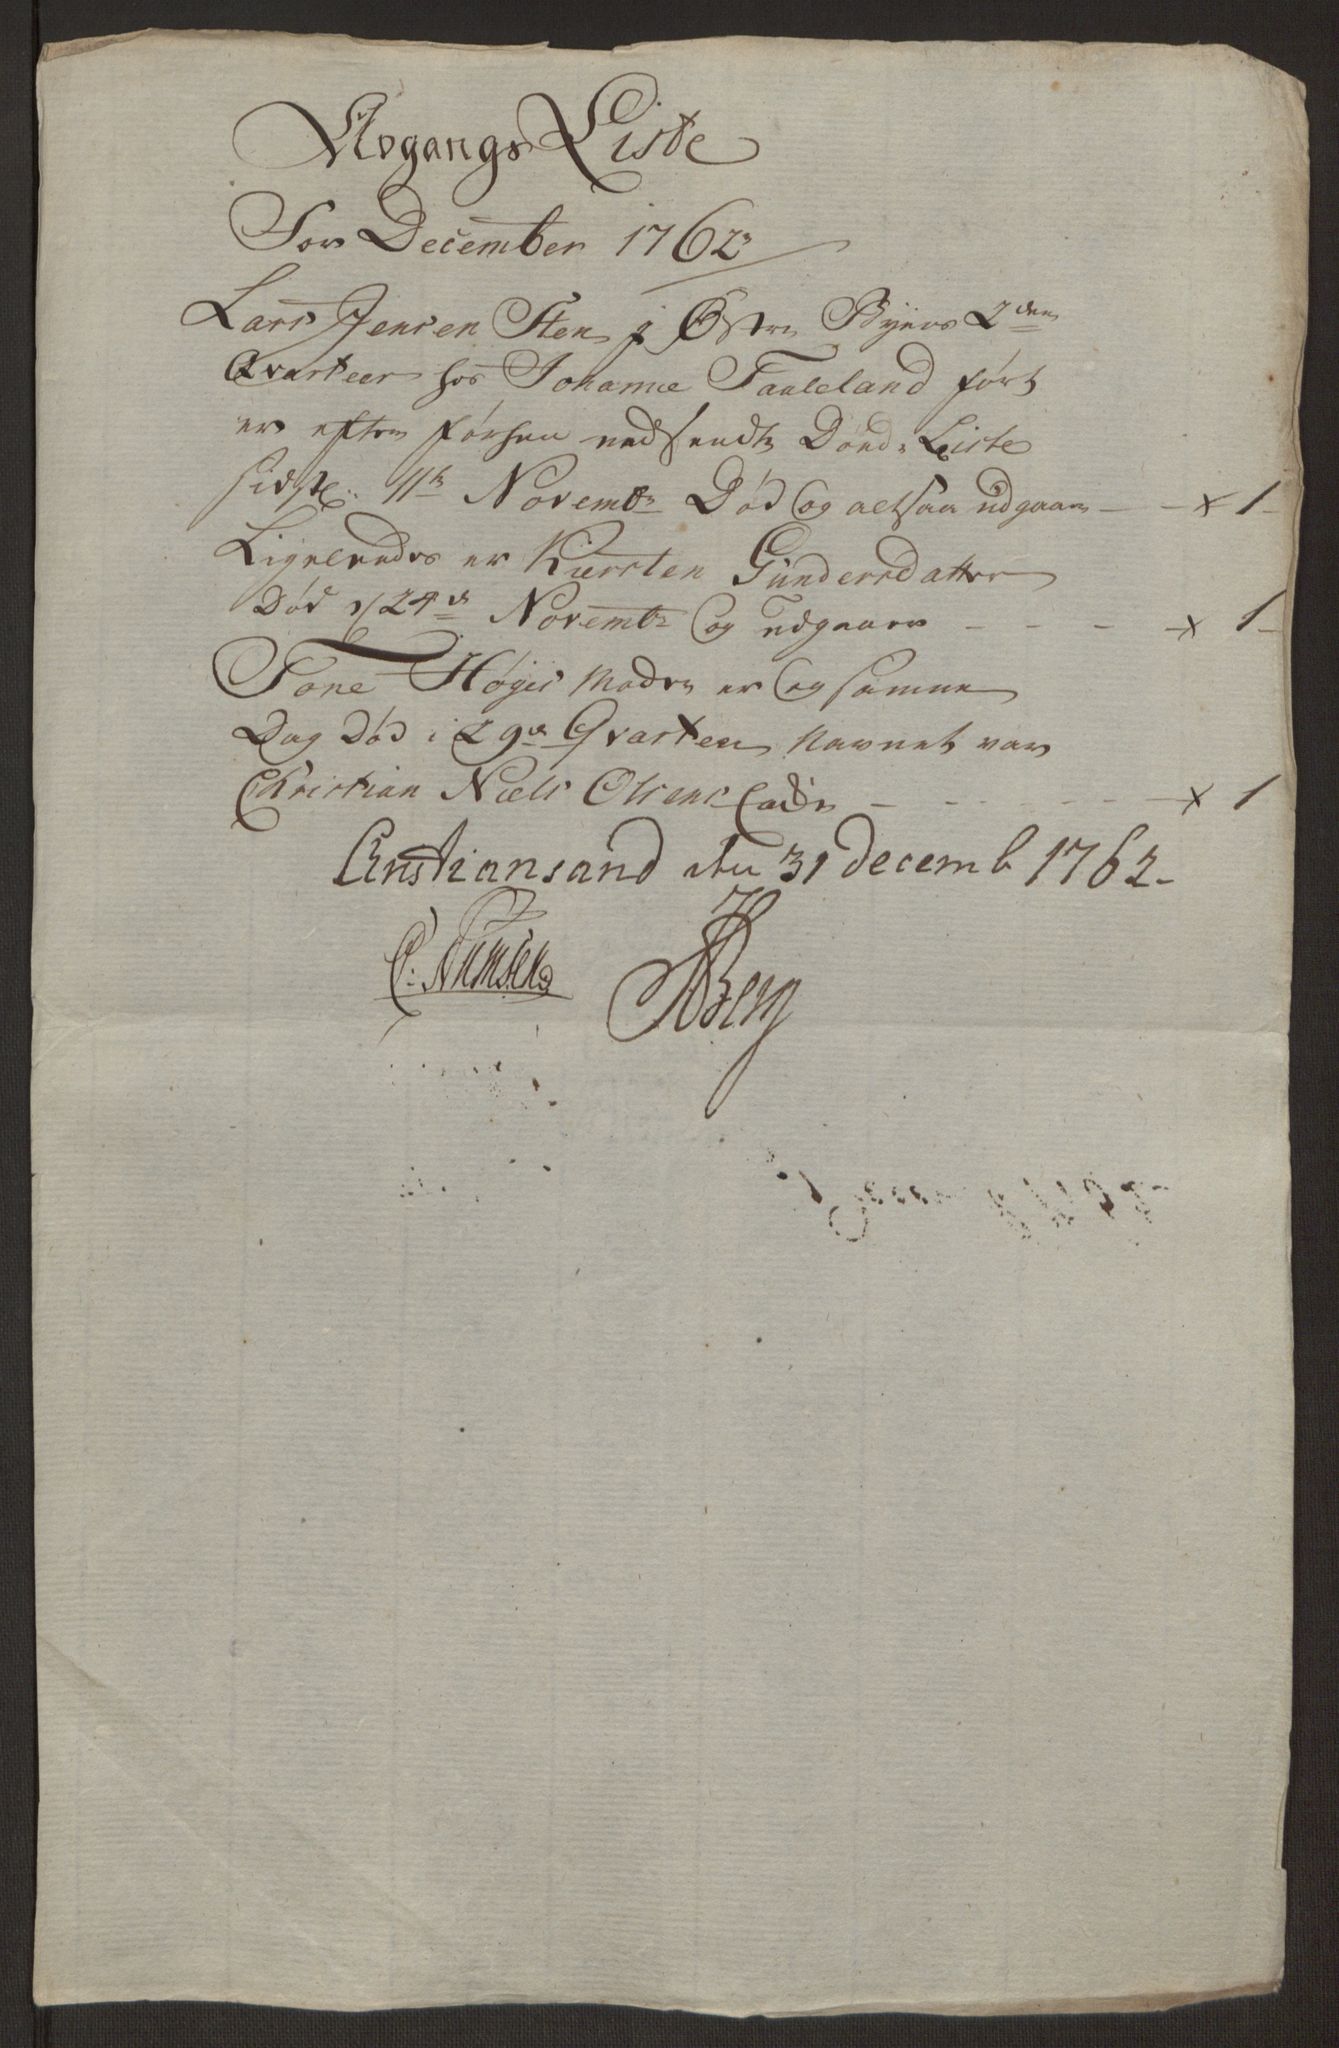 Afgangs Liste
For December 1762
Lars Jensen Sten j Østre Byens 2den
Qvarteer hos Johanne Fauleland ført
er efter forhen nedsendte Døde Liste
sidstl: 11te Novembr Død Og altsaa udgaar - - x 1 -
Ligeledes er Kiersten Gundersdatter
Død d 24de Novembr Og udgaar - - - - x 1 -
Tone Høyes Moder er Og samme
Dag Død i 29de Qvarteer Navnet var
Christian Niels Olsens - - - - - - x 1
Christiansand den 31 decemb 1762 -
C: Numsen
Berg